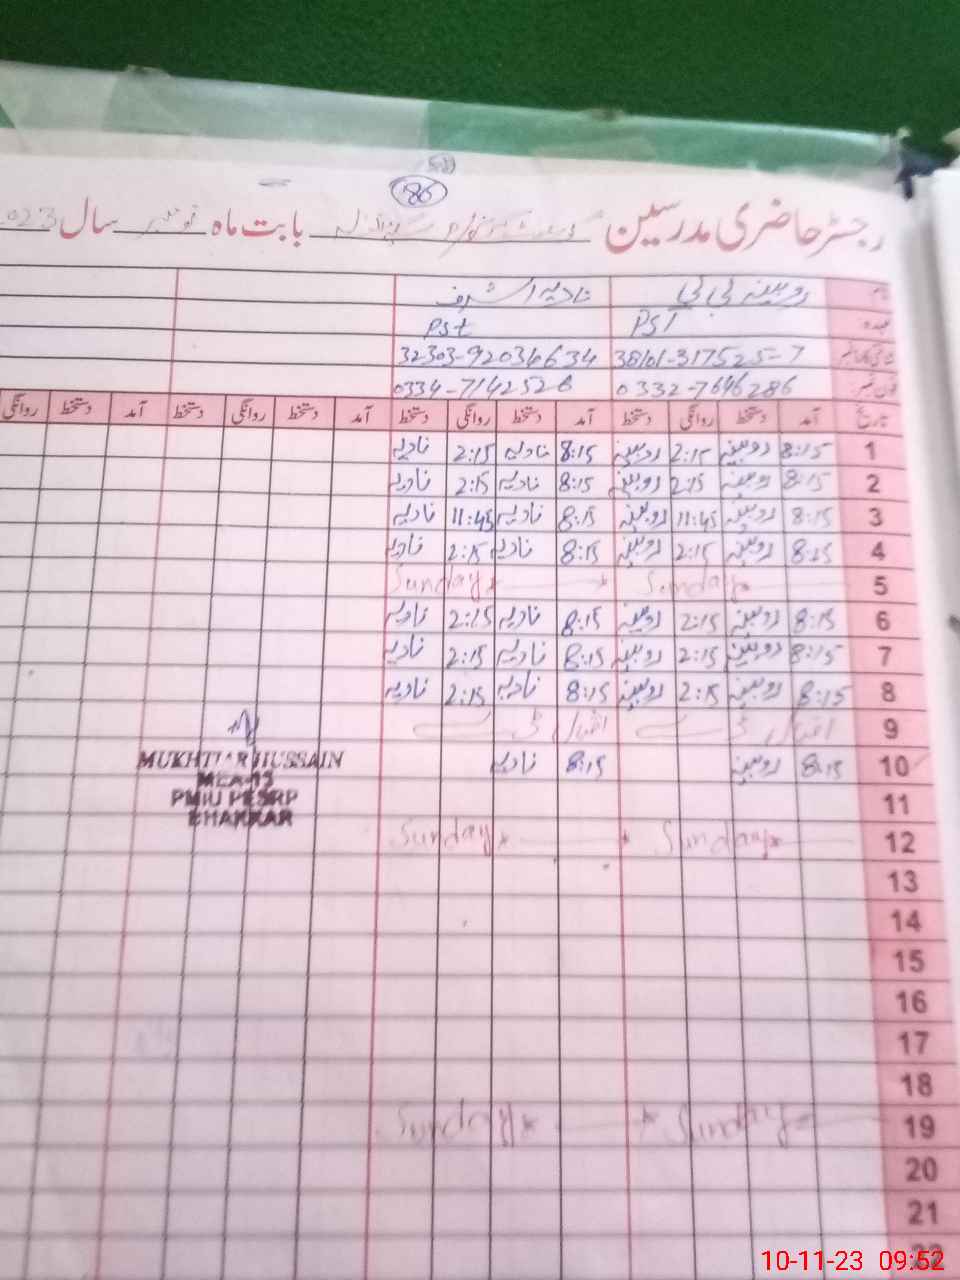 86
رجسٹر حاضری مدرسین بابت ماہ نومبر سال 023
نام روبینہ بی بی نادیہ اشرف
عہدہ PST Pst
38101-317525-7 32303-92036634
0332-7646286 0334-7142526
تاریخ آمد دستخط روانگی دستخط آمد دستخط روانگی دستخط آمد دستخط روانگی دستخط آمد دستخط روانگی
1 8:15 روبینہ 2:15 روبینہ 8:15 نادیہ 2:15 نادیہ
2 8:15 روبینہ 2:15 روبینہ 8:15 نادیہ 2:15 نادیہ
3 8:15 روبینہ 11:45 روبینہ 8:15 نادیہ 11:45 نادیہ
4 8:15 روبینہ 2:15 روبینہ 8:15 نادیہ 2:15 نادیہ
5 Sunday Sunday
6 8:15 روبینہ 2:15 روبینہ 8:15 نادیہ 2:15 نادیہ
7 8:15 روبینہ 2:15 روبینہ 8:15 نادیہ 2:15 نادیہ
8 8:15 روبینہ 2:15 روبینہ 8:15 نادیہ 2:15 نادیہ
9 اقبال ڈے اقبال ڈے
10 8:15 روبینہ 8:15 نادیہ
MUKHTIAR HUSSAIN
MEA-13
PMIU PESRP
BHAKKAR
11
12 Sunday Sunday
13
14
15
16
17
18
19 Sunday Sunday
20
21
22
10-11-23 09:52